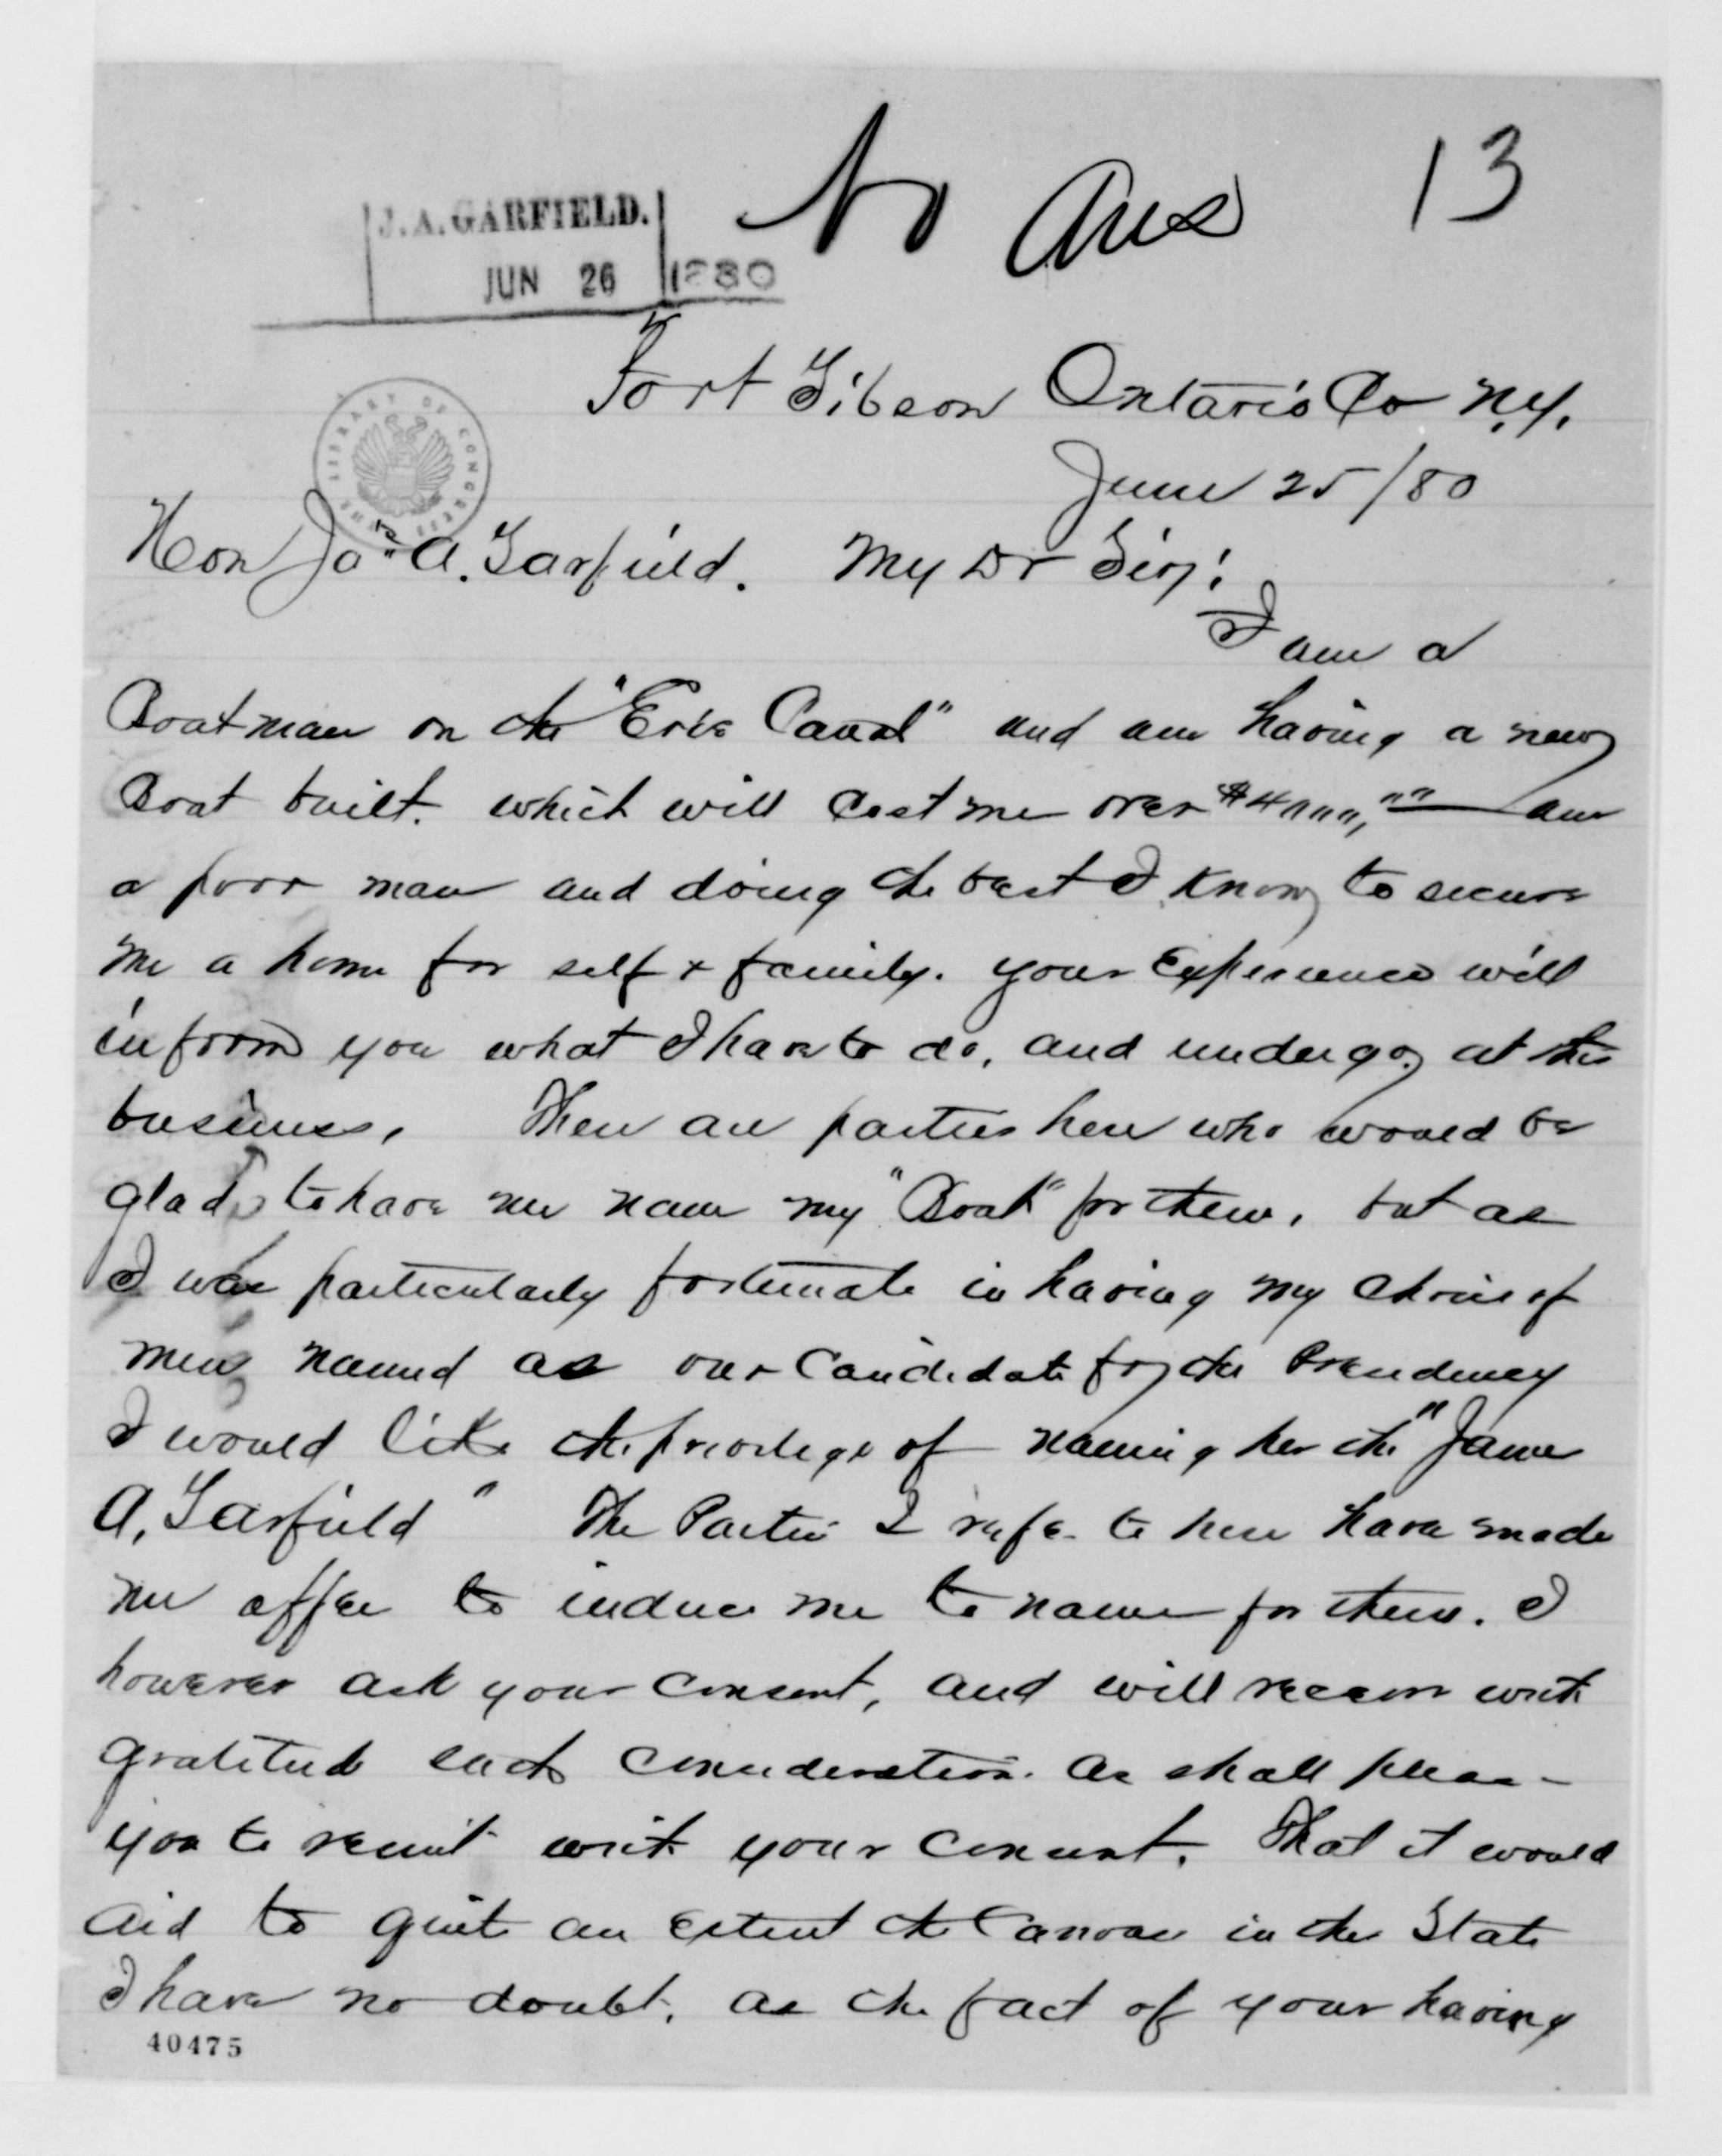 No Ans
13
J. A. GARFIELD.
JUN 26 1880
Port Gibson Ontario Co N.Y.
June 25/80
THE LIBRARY OF CONGRESS
Hon Jas A. Garfield. My Dr Sir;
I am a
Boatman on the "Erie Canal" and am having a new
Boat built. which will cost me over $4000,00 — am
a poor man and doing the best I know to secure
me a home for self & family. your Experience will
inform you what I have to do, and undergo, at this
business, There are parties here who would be
glad to have me name my "Boat" for them, but as
I was particularly fortunate in having my choice of
men named as our Candidate for the Presidency
I would like the privilege of naming her the "James
A. Garfield" The Parties I refer to here have made
me offer to induce me to name for them. I
however ask your consent, and will receive with
gratitude such consideration. as shall please
you to remit with your consent. That it would
aid to quite an extent the Canvass in the State
I have no doubt, as the fact of your having
40475